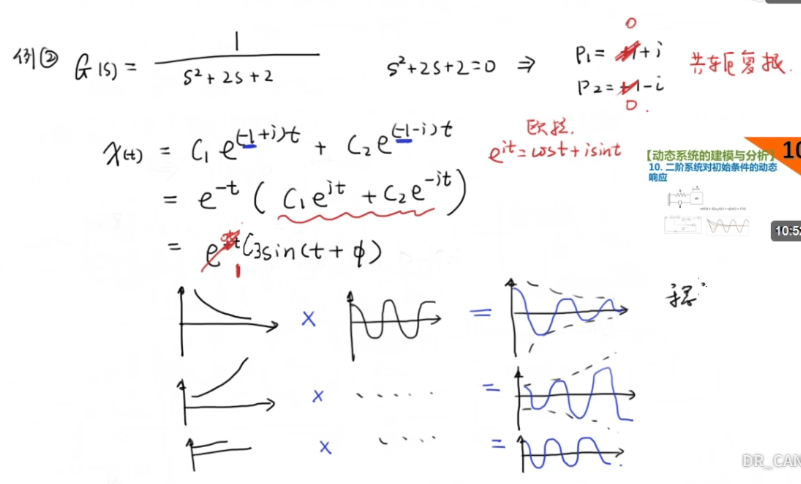 例② G(s) = 1 / (s²+2s+2)   s²+2s+2=0 ⇒ P₁ = -1+i   0   共轭复根.
P₂ = -1-i   0.
x(t) = C₁e^(-1+i)t + C₂e^(-1-i)t
欧拉.
e^it = cost + isint
= e^-t ( C₁e^it + C₂e^-it )
= e^-t C₃sin(t+φ)
1
× =
× ..... =
× .... =
【动态系统的建模与分析】
10. 二阶系统对初始条件的动态
响应
10
10:52
DR_CAN